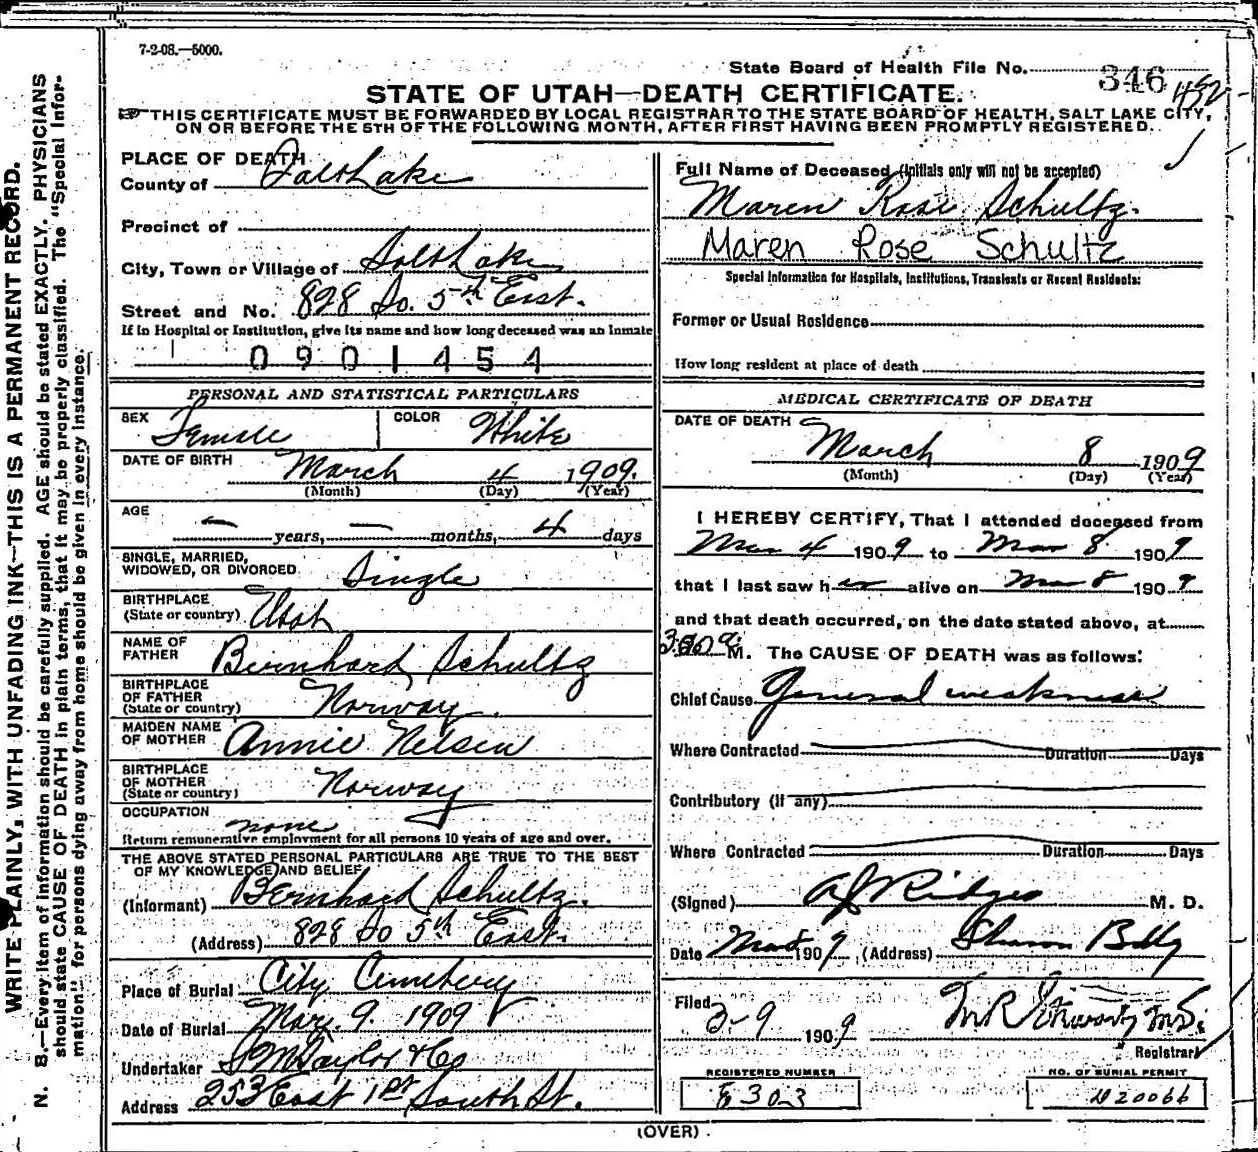 7-2-08.—5000.
State Board of Health File No. 346
452
STATE OF UTAH—DEATH CERTIFICATE.
THIS CERTIFICATE MUST BE FORWARDED BY LOCAL REGISTRAR TO THE STATE BOARD OF HEALTH, SALT LAKE CITY,
ON OR BEFORE THE 5TH OF THE FOLLOWING MONTH, AFTER FIRST HAVING BEEN PROMPTLY REGISTERED.
WRITE PLAINLY, WITH UNFADING INK—THIS IS A PERMANENT RECORD.
N. B.—Every item of information should be carefully supplied. AGE should be stated EXACTLY. PHYSICIANS
should state CAUSE OF DEATH in plain terms, that it may be properly classified. The "Special Infor-
mation" for persons dying away from home should be given in every instance.
PLACE OF DEATH
County of Salt Lake
Precinct of
City, Town or Village of Salt Lake
Street and No. 828 So. 5th East.
If in Hospital or Institution, give its name and how long deceased was an Inmate
0901454
PERSONAL AND STATISTICAL PARTICULARS
SEX Female COLOR White
DATE OF BIRTH March 4 1909.
(Month) (Day) (Year)
AGE
— years, — months, 4 days
SINGLE, MARRIED,
WIDOWED, OR DIVORCED Single
BIRTHPLACE
(State or country) Utah
NAME OF
FATHER Bernhard Schultz
BIRTHPLACE
OF FATHER
(State or country) Norway.
MAIDEN NAME
OF MOTHER Annie Nelsen
BIRTHPLACE
OF MOTHER
(State or country) Norway
OCCUPATION
none
Return remunerative employment for all persons 10 years of age and over.
THE ABOVE STATED PERSONAL PARTICULARS ARE TRUE TO THE BEST
OF MY KNOWLEDGE AND BELIEF
(Informant) Bernhard Schultz.
(Address) 828 So 5th East.
Place of Burial City Cemetery
Date of Burial Mar. 9. 1909
Undertaker S M Taylor & Co
Address 253 East 1st South St.
Full Name of Deceased (Initials only will not be accepted)
Maren Rose Schultz.
Maren Rose Schultz
Special Information for Hospitals, Institutions, Transients or Recent Residents:
Former or Usual Residence
How long resident at place of death
MEDICAL CERTIFICATE OF DEATH
DATE OF DEATH
March 8 1909
(Month) (Day) (Year)
I HEREBY CERTIFY, That I attended deceased from
Mar 4 1909 to Mar 8. 1909
that I last saw her alive on Mar 8 1909
and that death occurred, on the date stated above, at
M. The CAUSE OF DEATH was as follows:
Chief Cause General weakness
Where Contracted Duration Days
Contributory (if any)
Where Contracted Duration Days
(Signed) A J Ridges M. D.
Date Mar 8 1909 (Address) Sharon Bldg
Filed 3-9 1909
Registrar
REGISTERED NUMBER
E303
NO. OF BURIAL PERMIT
D20066
(OVER)